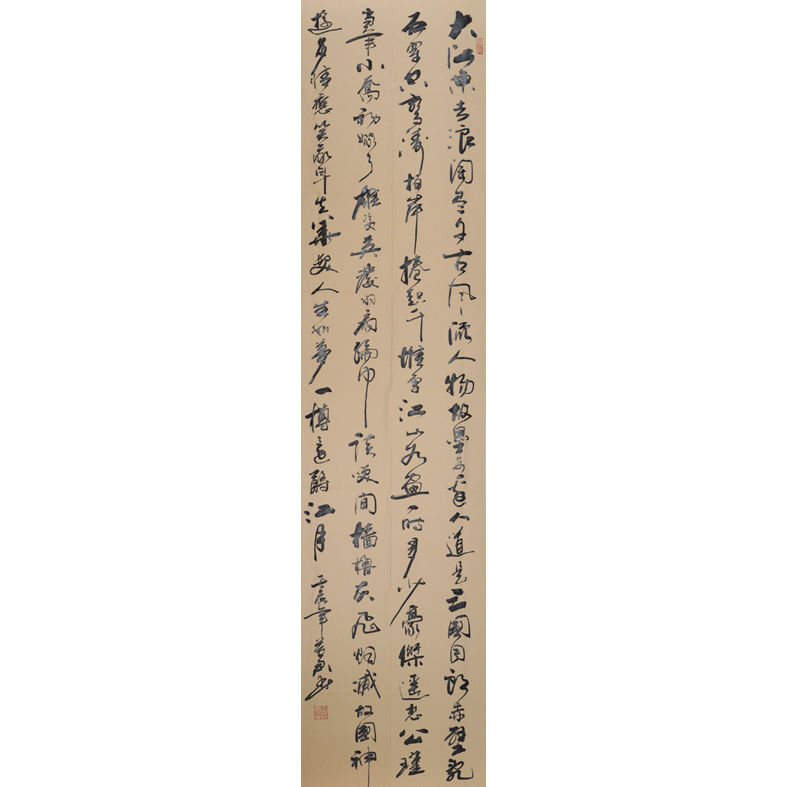 大江東去浪淘盡千古風流人物故壘西邊人道是三國周郎赤壁亂
石穿空驚濤拍岸捲起千堆雪江山如畫一時多少豪傑遙想公瑾
當年小喬初嫁了雄姿英發羽扇綸巾談笑間檣櫓灰飛烟滅故國神
遊多情應笑我早生華髮人生如夢一樽還酹江月